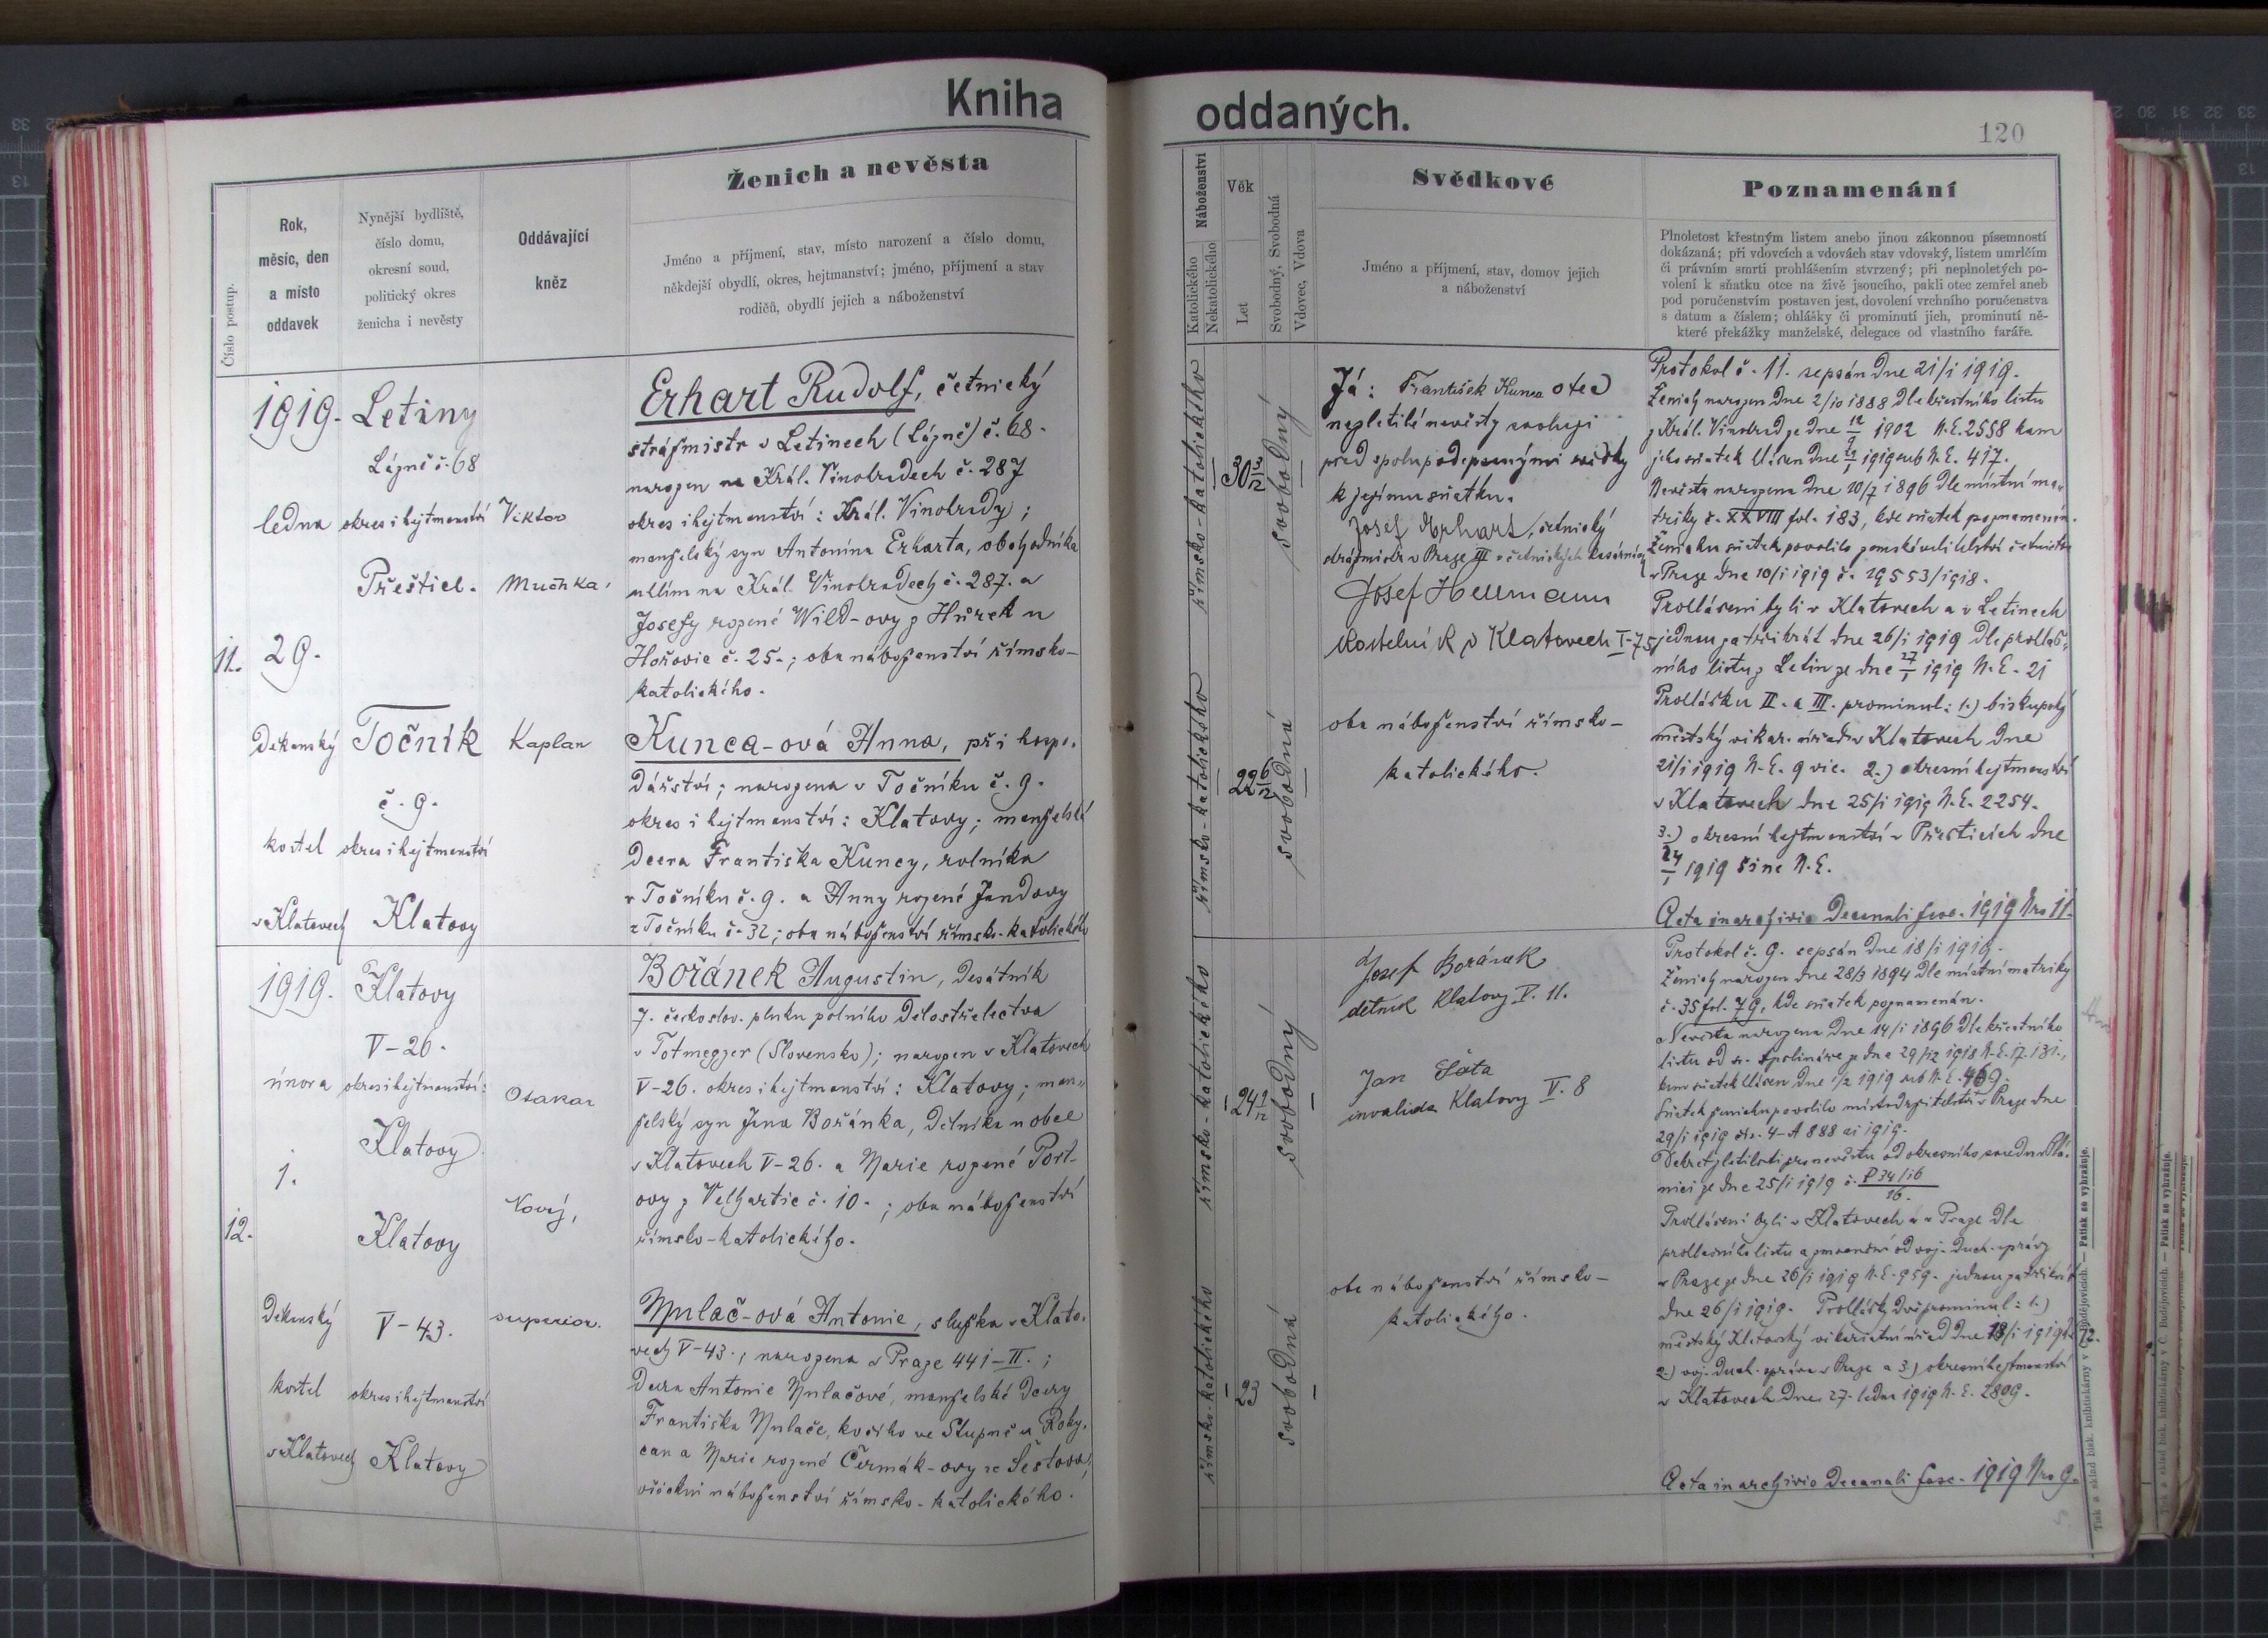 Kniha
oddaných.
120
Ženich a nevěsta
Číslo postup.
Rok,
měsíc, den
a místo
oddavek
Nynější bydliště,
číslo domu,
okresní soud,
politický okres
ženicha i nevěsty
Oddávající
kněz
Jméno a příjmení, stav, místo narození a číslo domu,
někdejší obydlí, okres, hejtmanství; jméno, příjmení a stav
rodičů, obydlí jejich a náboženství
Náboženství
Katolického
Nekatolického
Věk
Let
Svobodný, Svobodná
Vdovec, Vdova
Svědkové
Jméno a příjmení, stav, domov jejich
a náboženství
Poznamenání
Plnoletost křestným listem anebo jinou zákonnou písemností
dokázaná; při vdovcích a vdovách stav vdovský, listem umrlčím
či právním smrti prohlášením stvrzený; při neplnoletých po-
volení k sňatku otce na živě jsoucího, pakli otec zemřel aneb
pod poručenstvím postaven jest, dovolení vrchního poručenstva
s datum a číslem; ohlášky či prominutí jich, prominutí ně-
které překážky manželské, delegace od vlastního faráře.
11.
1919.
ledna
29.
Děkanský
kostel
v Klatovech
Letiny
Lázně č. 68
okres i hejtmanství
Přeštice.
Točník
č. 9.
okres i hejtmanství
Klatovy
Viktor
Muchka,
Kaplan
Erhart Rudolf, četnický
strážmistr v Letinech (Lázně) č. 68.
narozen na Král. Vinohradech č. 287
okres i hejtmanství: Král. Vinohrady;
manželský syn Antonína Erharta, obchodníka
uhlím na Král. Vinohradech č. 287. a
Josefy rozené Wild-ovy z Hůrek u
Hořovic č. 25.; oba náboženství římsko-
katolického.
Kunca-ová Anna, při hospo-
dářství; narozena v Točníku č. 9.
okres i hejtmanství: Klatovy; manželská
dcera Františka Kuncy, rolníka
v Točníku č. 9. a Anny rozené Jandovy
z Točníku č. 32; oba náboženství římsko-katolického
římsko-katolického
30 3/12
svobodný
římsko-katolického
22 6/12
svobodná
Já: František Kunca otec
nezletilé nevěsty svoluji
před spolupodepsanými svědky
k jejímu sňatku.
Josef Erhart, četnický
strážmistr v Praze III v četnických kasárnách
Josef Hermann
Kostelník v Klatovech I-75
oba náboženství římsko-
katolického.
Protokol č. 11. sepsán dne 21/i 1919.
Ženich narozen dne 2/10 1888 dle křestního listu
z Král. Vinohrad ze dne 12/9 1902 N.E. 2558 kam
jeho sňatek hlášen dne 1919 sub N.E. 417.
Nevěsta narozena dne 10/7 1896 dle místní ma-
triky č. XXVIII fol. 183, kde sňatek poznamenán.
Ženichu sňatek povolilo zemské velitelství četnictva
v Praze dne 10/i 1919 č. 19553/1918.
Prohlášeni byli v Klatovech a v Letinech
jednou za třikrát dne 26/i 1919 dle prohláš-
ního listu z Letin ze dne 27/1 1919 N.E. 21
Prohlášku II. a III. prominul: 1.) biskupský
městský vikar. úřad v Klatovech dne
21/i 1919 N.E. 9 vic. 2.) okresní hejtmanství
v Klatovech dne 25/i 1919 N.E. 2254.
3.) okresní hejtmanství v Přešticích dne
24/1 1919 sine N.E.
Acta in archivio Decanali fasc. 1919 Nro 11.
12.
1919.
února
1.
Děkanský
kostel
v Klatovech
Klatovy
V-26.
okres i hejtmanství:
Klatovy
Klatovy
V-43.
okres i hejtmanství
Klatovy
Otakar
Nový,
superior.
Bořánek Augustin, desátník
7. českoslov. pluku polního dělostřelectva
v Totmegyer (Slovensko); narozen v Klatovech
V-26. okres i hejtmanství: Klatovy; man-
želský syn Jana Bořánka, dělníka v obci
v Klatovech V-26. a Marie rozené Port-
ovy z Velhartic č. 10.; oba náboženství
římsko-katolického.
Mulač-ová Antonie, služka v Klato-
vech V-43.; narozena v Praze 441-II.;
dcera Antonie Mulačové, manželské dcery
Františka Mulače, kočího ve Stupně u Roky-
can a Marie rozené Čermák-ovy ze Šestova;
všickni náboženství římsko-katolického.
římsko-katolického
24 1/12
svobodný
římsko-katolického
23
svobodná
Josef Bořánek
dělník Klatovy V. 11.
Jan Šáta
invalida Klatovy V. 8
oba náboženství římsko-
katolického.
Protokol č. 9. sepsán dne 18/i 1919.
Ženich narozen dne 28/3 1894 dle místní matriky
č. 35 fol. 79, kde sňatek poznamenán.
Nevěsta narozena dne 14/i 1896 dle křestního
listu od sv. Apolináře z dne 29/12 1918 N.E. 17.131.,
kam sňatek hlášen dne 1/2 1919 sub N.E. 469.
Sňatek ženichu povolilo místodržitelství v Praze dne
29/i 1919 čís. 4-A 888 ai 1919.
Dekret zletilosti pro nevěstu od okresního soudu v Plá-
nici ze dne 25/i 1919 č. P 34/16
16.
Prohlášeni byli v Klatovech a v Praze dle
v Praze ze dne 26/i 1919 N.E. 959. jednou za třikrát
dne 26/i 1919. Prohlášky dvě prominul: 1.)
městský Klatovský vikariátní úřad dne 18/i 1919 č. 72.
2.) voj. duch. správa v Praze a 3.) okresní hejtmanství
v Klatovech dne 27. ledna 1919 N.E. 2809.
Acta in archivio Decanali fasc. 1919 Nro 9.
Tisk a sklad bisk. knihtiskárny v Č. Budějovicích. — Patisk se vyhražuje.